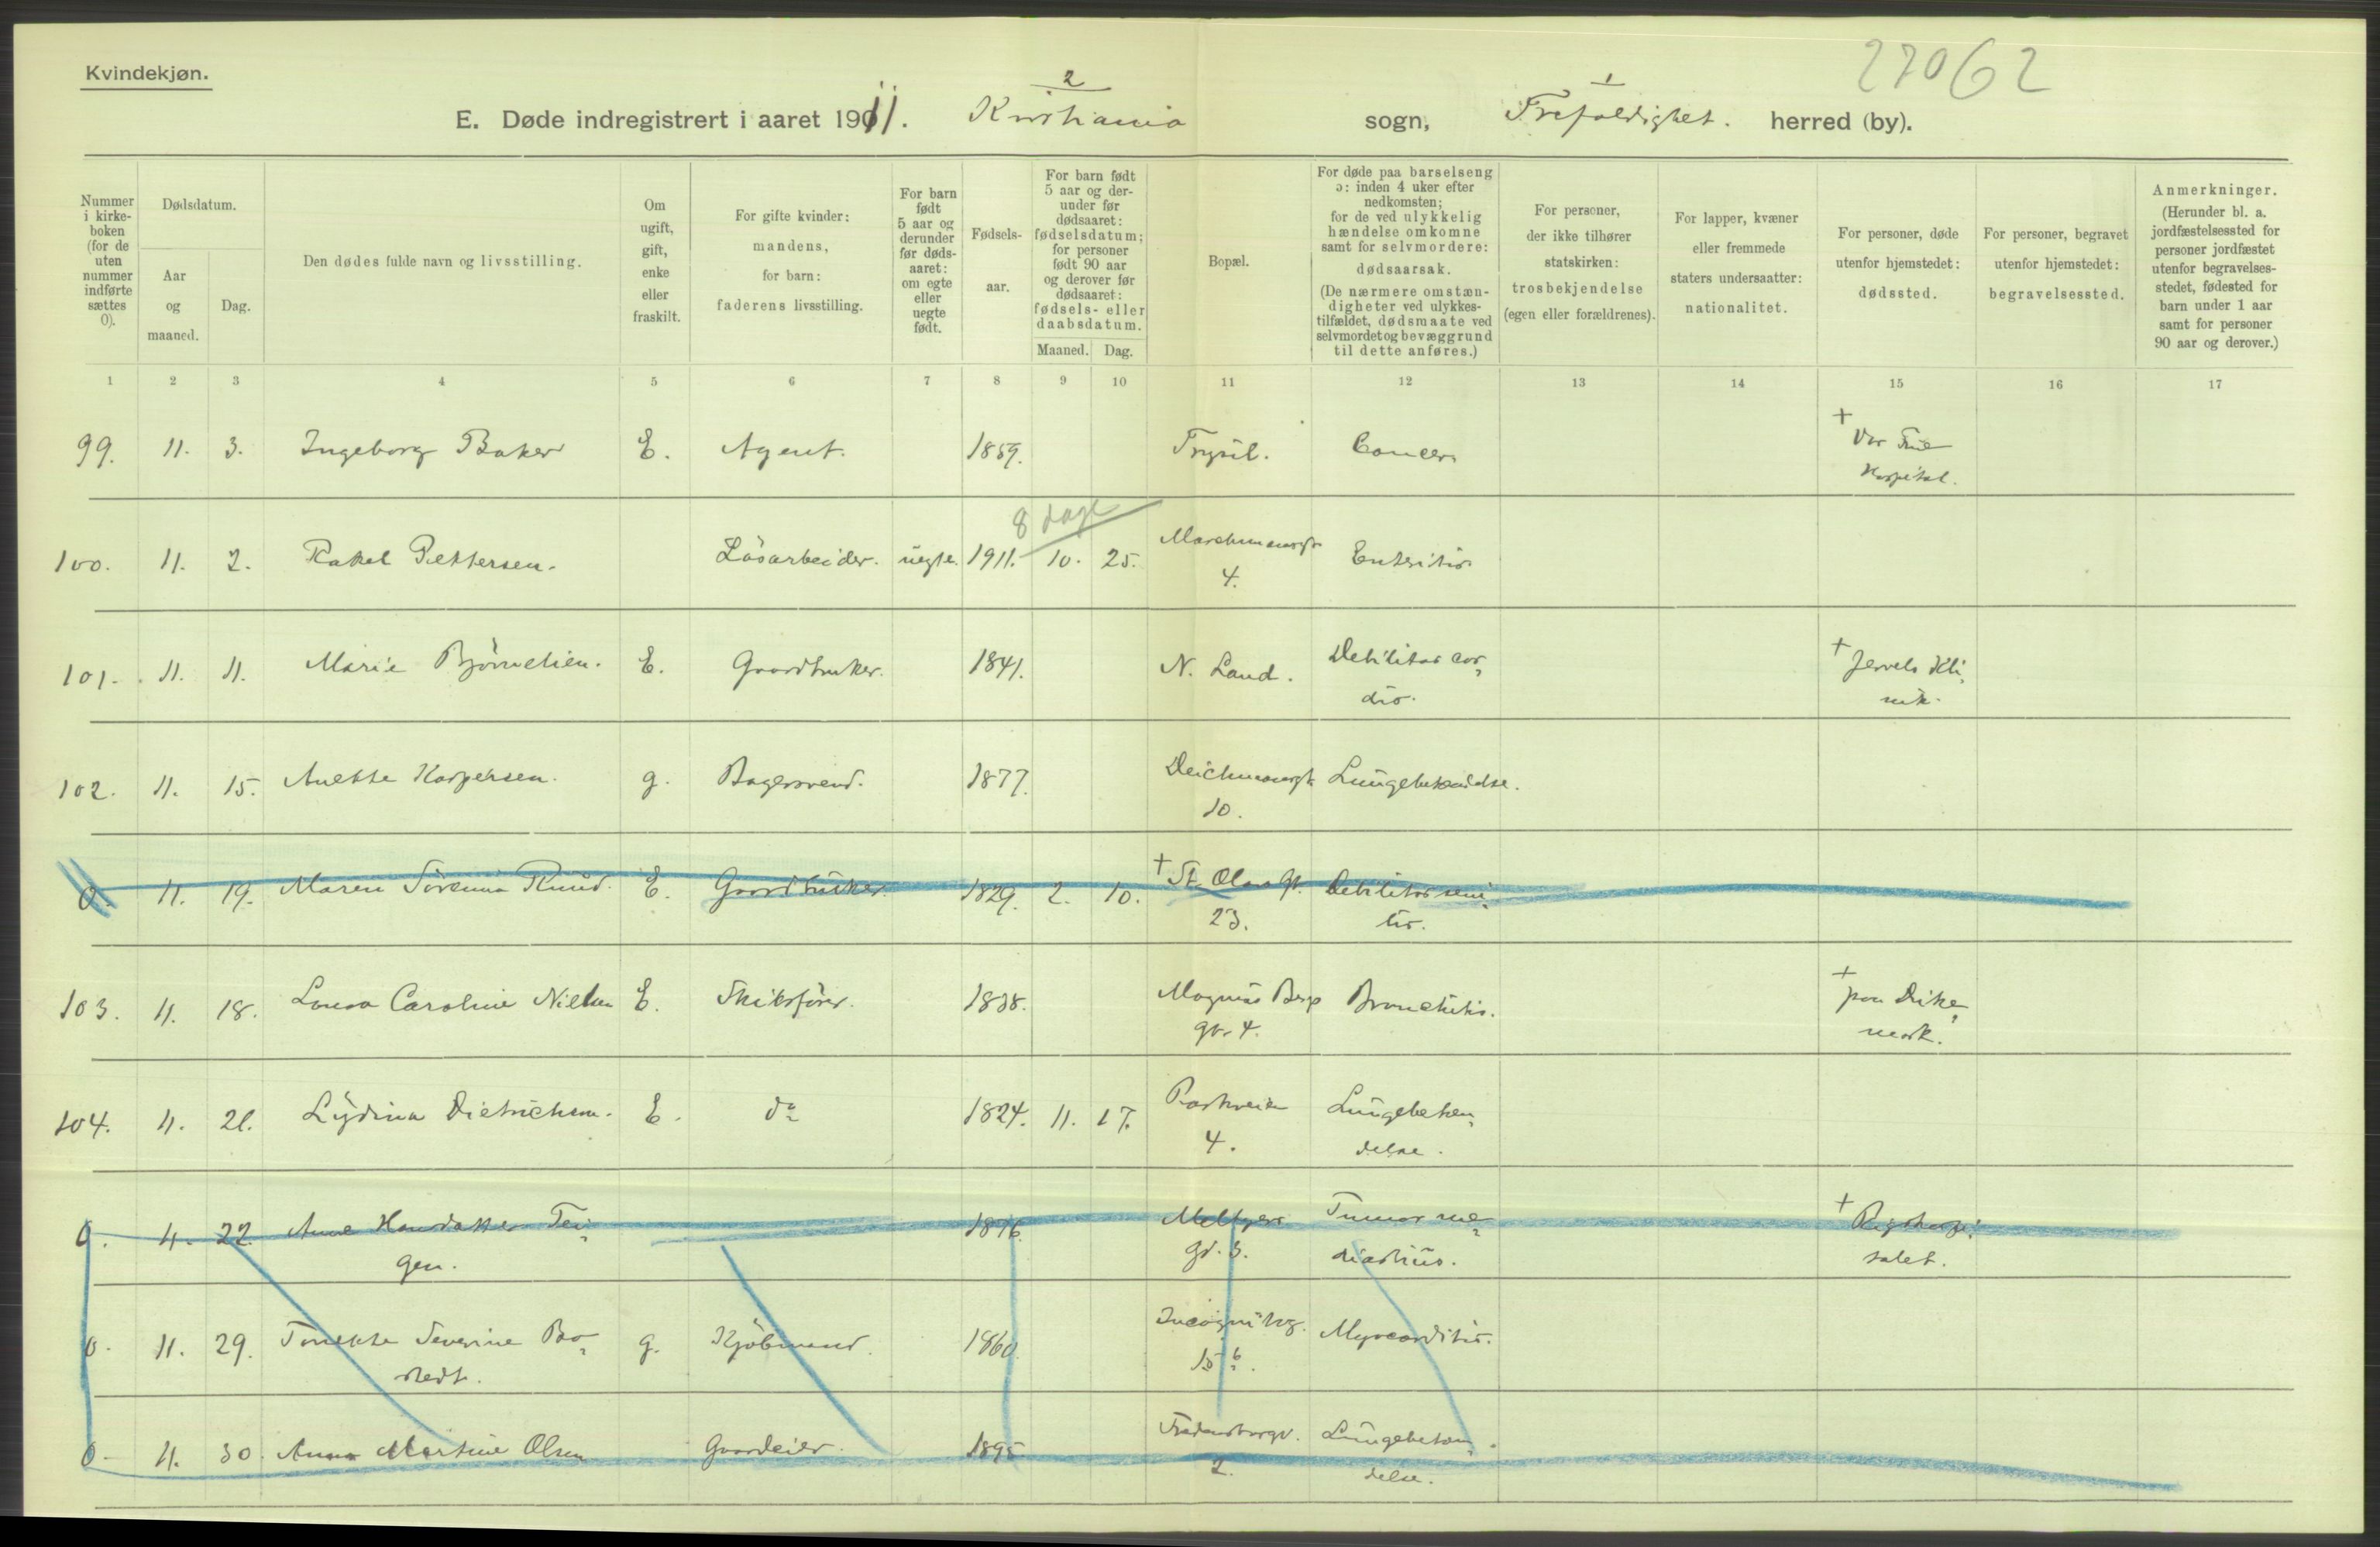 Kvindekjøn.
27062
2
1
E. Døde indregistrert i aaret 1911. Kristiania sogn, Trefoldighet. herred (by).
Nummer i kirke- boken (for de uten nummer indførte sættes 0).
Dødsdatum.
Aar og maaned.
Dag.
Den dødes fulde navn og livsstilling.
Om ugift, gift, enke eller fraskilt.
For gifte kvinder: mandens, for barn: faderens livsstilling.
For barn født 5 aar og derunder før døds- aaret: om egte eller uegte født.
Fødsels- aar.
For barn født 5 aar og der- under før dødsaaret: fødselsdatum; for personer født 90 aar og derover før dødsaaret: fødsels- eller daabsdatum.
Maaned. Dag.
Bopæl.
For døde paa barselseng ɔ: inden 4 uker efter nedkomsten; for de ved ulykkelig hændelse omkomne samt for selvmordere: dødsaarsak. (De nærmere omstæn- digheter ved ulykkes- tilfældet, dødsmaate ved selvmordet og bevæggrund til dette anføres.)
For personer, der ikke tilhører statskirken: trosbekjendelse (egen eller forældrenes).
For lapper, kvæner eller fremmede staters undersaatter: nationalitet.
For personer, døde utenfor hjemstedet: dødssted.
For personer, begravet utenfor hjemstedet: begravelsessted.
Anmerkninger. (Herunder bl. a. jordfæstelsessted for personer jordfæstet utenfor begravelses- stedet, fødested for barn under 1 aar samt for personer 90 aar og derover.)
1 2 3 4 5 6 7 8 9 10 11 12 13 14 15 16 17
99. 11. 3. Ingeborg Baker E. Agent. 1859. Trysil. Cancer + Vor Frue
Hospital.
8 dage
100. 11. 2. Rakel Pettersen. Løsarbeider. uegte. 1911. 10. 25. Enteritis
4.
101. 11. 11. Marie E. Gaardbruker. 1841. N. Land. Debilitas cor„ + Jervels Kli„
dis. nik.
102. 11. 15. Anette Kaspersen. g. Bagersvend. 1877. Deichmansgt. Lungebetændelse.
10.
0. 11. 19. Maren Sørenna Ruud. E. Gaardbruker. 1829. 2. 10. + St. Olavs gt. Debilitas seni„
23. lis.
103. 11. 18. Lovisa Caroline Nielsen E. Skibsfører. 1838. Magnus Bergs Bronchitis. + paa Dike„
gt. 4. mark.
104. 11. 21. Lydina Dietrichson. E. do 1824. 11. 17. Parkveien Lungebetæn„
4. delse.
0. 11. 22. Anne Tei„ 1876. Meltzers Tumor me„ + Rigshospi„
gen. gt. 3. diastinis. talet.
0. 11. 29. Tonette Severine Bo„ g. Kjøbmand. 1860. Incognitog. Myocarditis.
stedt. 15 b.
0. 11. 30. Anna Martine Olsen Gaardeier. 1895 Fredensborgv. Lungebetæn„
2. delse.